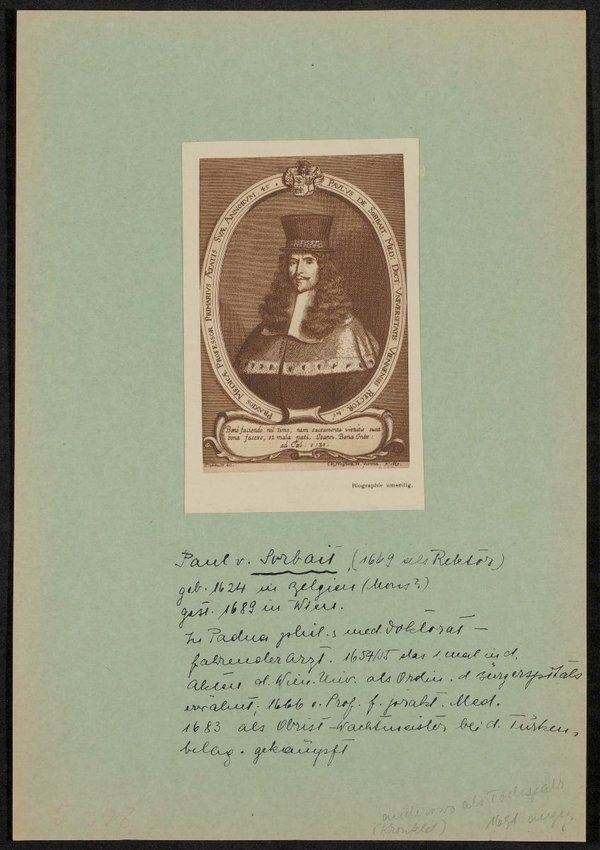 PAULUS DE SORBAIT MED: DOCT. UNIVERSITATIS VIENNENSIS RECTOR. &c.
PRAXEOS MEDICÆ PROFESSOR PRIMARIUS ÆTATIS SUÆ ANNORUM 45.
Bene faciendo nil timo, nam sacramenta virtutis sunt
bona facere, et mala pati. Ioann. Bona
ad Cæl: 1:32.
Biographie umseitig.
Paul v. Sorbait, (1669 als Rektor)
geb. 1624 in Belgien (Mons?)
gest. 1689 in Wien.
In Padua phil. u med. Doktorat –
fahrender Arzt. 1654/55 das 1 mal in d.
Akten d. Wien. Univ. als Ordin. d Bürgerspitals
erwähnt; 1666 o. Prof. f. prakt. Med.
1683 als Obrist-Wachtmeister bei d. Türken-
belag. gekämpft
anderswo als Todesjahr
(Kronfeld) 1691 ang.